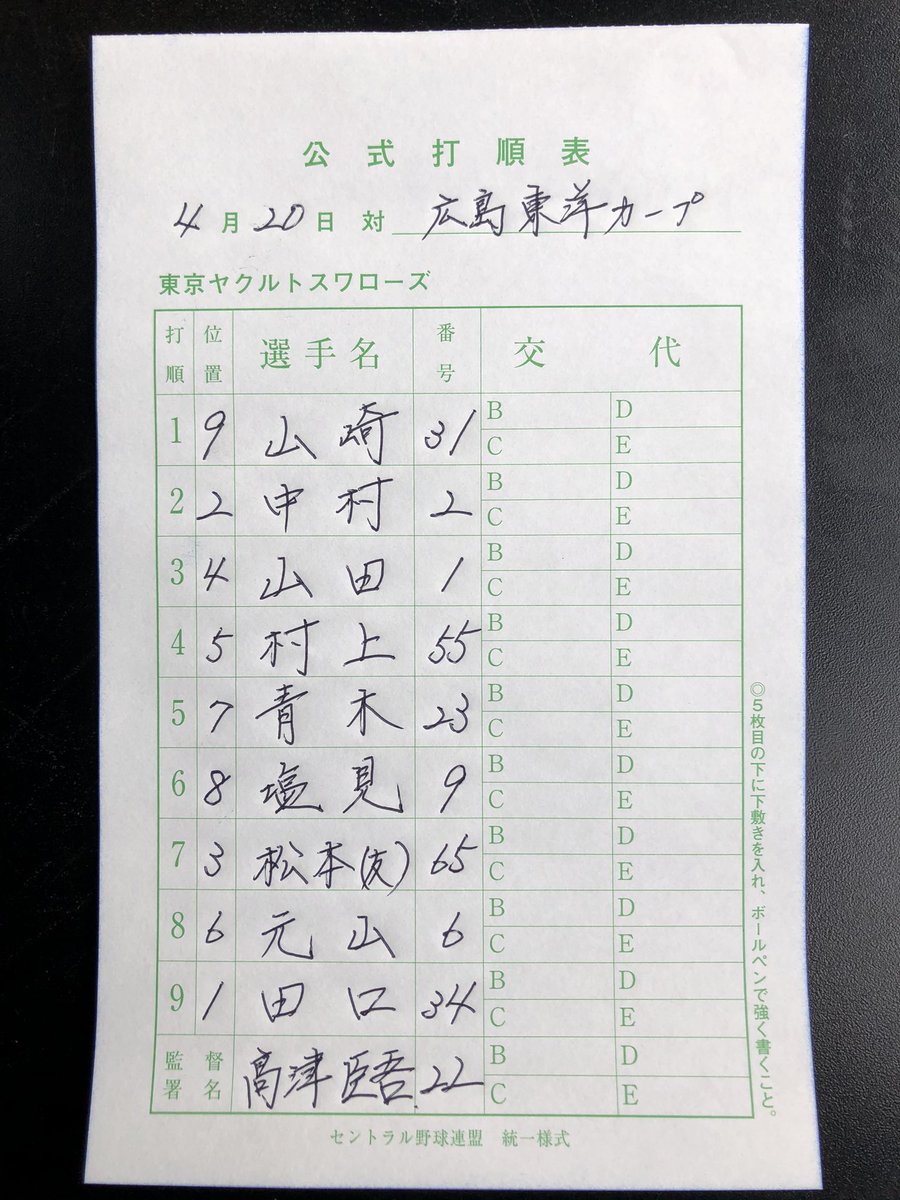 公式打順表
4月20日 対 広島東洋カープ
東京ヤクルトスワローズ
打順 位置 選手名 番号 交代
1 9 山崎 31 B D C E
2 2 中村 2 B D C E
3 4 山田 1 B D C E
4 5 村上 55 B D C E
5 7 青木 23 B D C E
6 8 塩見 9 B D C E
7 3 松本(友) 65 B D C E
8 6 元山 6 B D C E
9 1 田口 34 B D C E
監督署名 高津臣吾 22 B D C E
◎5枚目の下に下敷きを入れ、ボールペンで強く書くこと。
セントラル野球連盟 統一様式